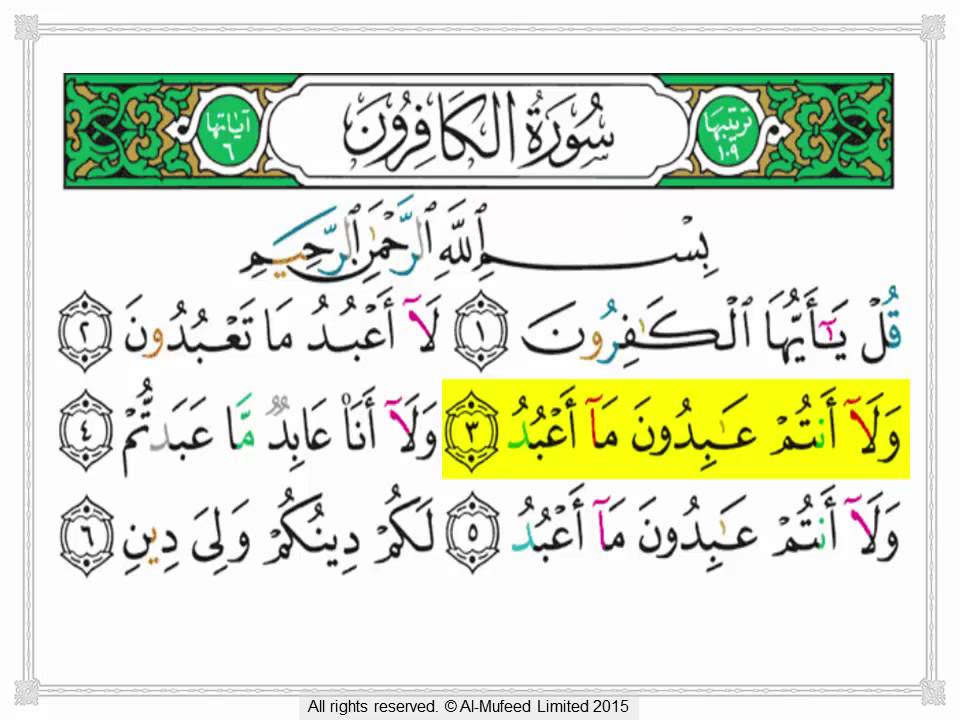 ترتيبها ١٠٩ سُورَةُ الكَافِرُونَ آياتها ٦
بِسْمِ ٱللَّهِ ٱلرَّحْمَٰنِ ٱلرَّحِيمِ
قُلْ يَٰٓأَيُّهَا ٱلْكَٰفِرُونَ ١ لَآ أَعْبُدُ مَا تَعْبُدُونَ ٢
وَلَآ أَنتُمْ عَٰبِدُونَ مَآ أَعْبُدُ ٣ وَلَآ أَنَا۠ عَابِدٌ مَّا عَبَدتُّمْ ٤
وَلَآ أَنتُمْ عَٰبِدُونَ مَآ أَعْبُدُ ٥ لَكُمْ دِينُكُمْ وَلِىَ دِينِ ٦
All rights reserved. © Al-Mufeed Limited 2015